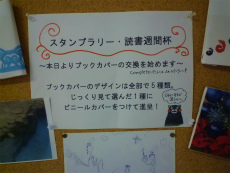 スタンプラリー・読書週間杯
～本日よりブックカバーの交換を始めます～
ブックカバーのデザインは全部で5種類。
じっくり見て選んだ1種に
ビニールカバーをつけて進呈！